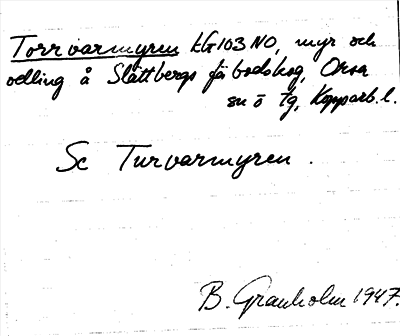 Torrvarmyren KG103NO, myr och
odling å Slättbergs fäbodskog, Orsa
sn o tg, Kopparb. l.
Se Turvarmyren.
B. Granholm 1947.